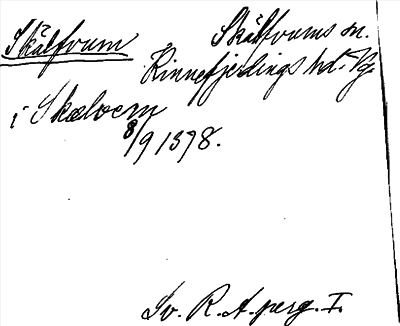 Skälfvum Skälfvums sn.
Kinnefjerdings hd. Vg.
i Skælvem
8/9 1398.
Sv. R. A. perg. I.